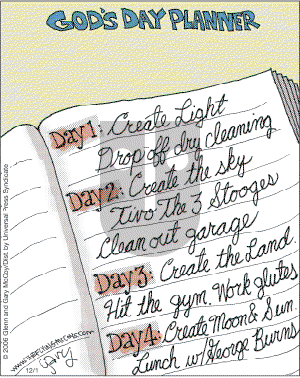 GOD'S DAY PLANNER
Day 1: Create Light
Drop off dry cleaning
Day 2: Create the sky
Tivo The 3 Stooges
Clean out garage
Day 3: Create the Land
Hit the gym. Work glutes
Day 4: Create Moon & Sun.
Lunch w/ George Burns
© 2006 Glenn and Gary McCoy/Dist. by Universal Press Syndicate
12/1